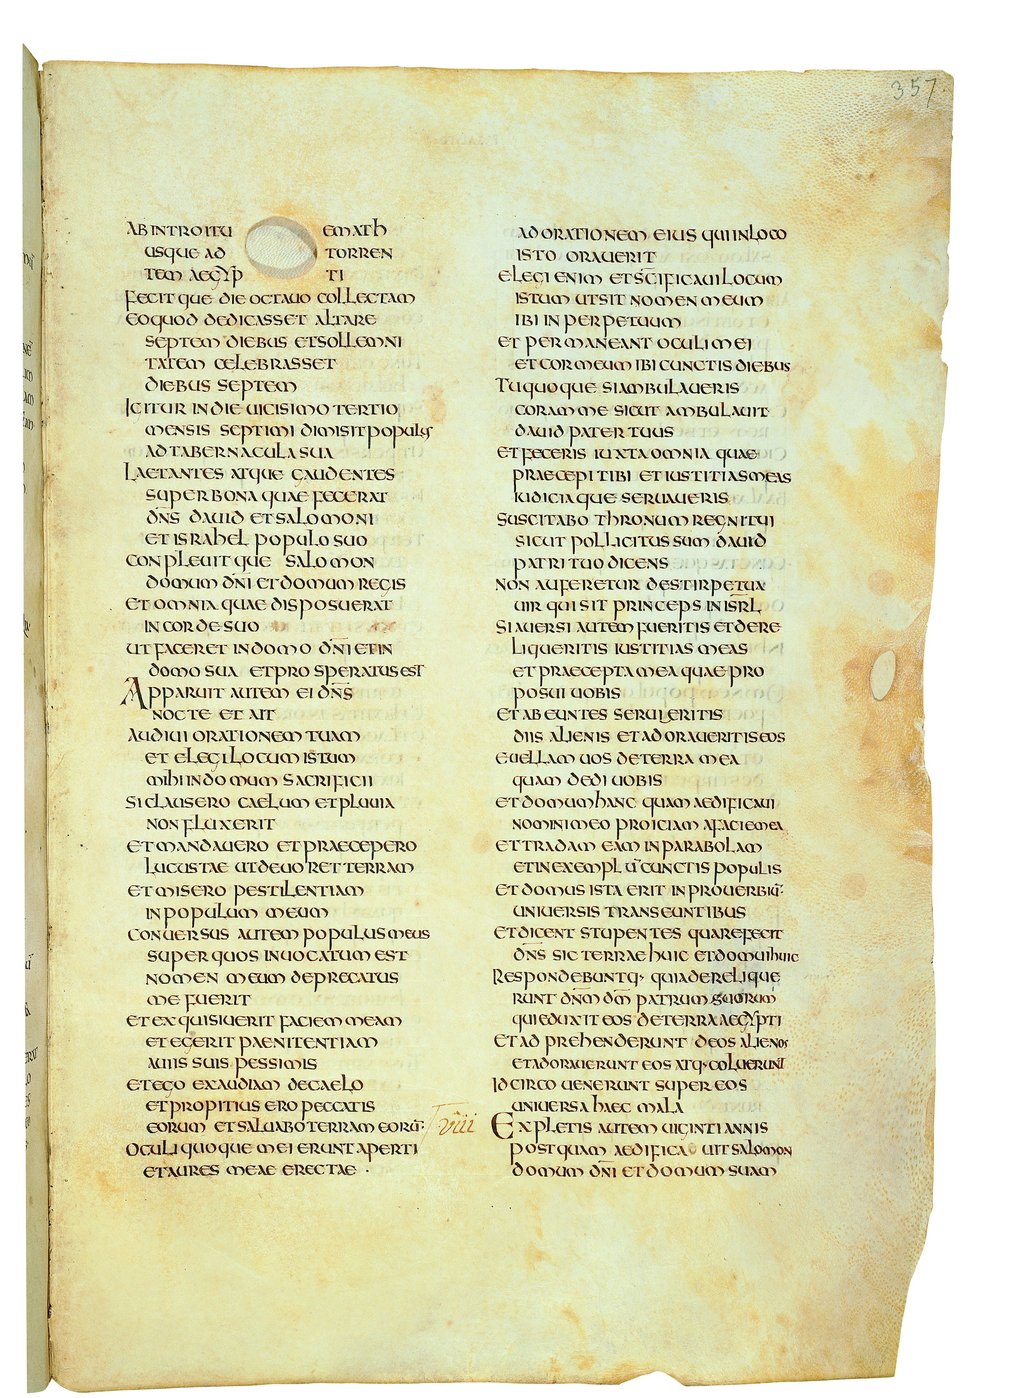 357
AB INTROITU EMATH
USQUE AD TORREN
TEM AEGYP TI
FECITQUE DIE OCTAUO COLLECTAM
EO QUOD DEDICASSET ALTARE
SEPTEM DIEBUS ET SOLLEMNI
TATEM CELEBRASSET
DIEBUS SEPTEM
IGITUR IN DIE UICISIMO TERTIO
MENSIS SEPTIMI DIMISIT POPULUS
AD TABERNACULA SUA
LAETANTES ATQUE GAUDENTES
SUPER BONA QUAE FECERAT
DN̅S DAUID ET SALOMONI
ET ISRAHEL POPULO SUO
CONPLEUITQUE SALOMON
DOMUM DN̅I ET DOMUM REGIS
ET OMNIA QUAE DISPOSUERAT
IN CORDE SUO
UT FACERET IN DOMO DN̅I ET IN
DOMO SUA ET PROSPERATUS EST
APPARUIT AUTEM EI DN̅S
NOCTE ET AIT
AUDIUI ORATIONEM TUAM
ET ELEGI LOCUM ISTUM
MIHI IN DOMUM SACRIFICII
SI CLAUSERO CAELUM ET PLUUIA
NON FLUXERIT
ET MANDAUERO ET PRAECEPERO
LUCUSTAE UT DEUORET TERRAM
ET MISERO PESTILENTIAM
IN POPULUM MEUM
CONUERSUS AUTEM POPULUS MEUS
SUPER QUOS INUOCATUM EST
NOMEN MEUM DEPRECATUS
ME FUERIT
ET EXQUISIUERIT FACIEM MEAM
ET EGERIT PAENITENTIAM
A UIIS SUIS PESSIMIS
ET EGO EXAUDIAM DE CAELO
ET PROPITIUS ERO PECCATIS
EORUM ET SALUABO TERRAM EORU̅
OCULI QUOQUE MEI ERUNT APERTI
ET AURES MEAE ERECTAE ·
AD ORATIONEM EIUS QUI IN LOCO
ISTO ORAUERIT
ELEGI ENIM ET SC̅IFICAUI LOCUM
ISTUM UT SIT NOMEN MEUM
IBI IN PERPETUUM
ET PERMANEANT OCULI MEI
ET COR MEUM IBI CUNCTIS DIEBUS
TU QUOQUE SI AMBULAUERIS
CORAM ME SICUT AMBULAUIT
DAUID PATER TUUS
ET FECERIS IUXTA OMNIA QUAE
PRAECEPI TIBI ET IUSTITIAS MEAS
IUDICIAQUE SERUAUERIS
SUSCITABO THRONUM REGNI TUI
SICUT POLLICITUS SUM DAUID
PATRI TUO DICENS
NON AUFERETUR DE STIRPE TUA
UIR QUI SIT PRINCEPS IN ISR̅L
SI AUERSI AUTEM FUERITIS ET DERE
LIQUERITIS IUSTITIAS MEAS
ET PRAECEPTA MEA QUAE PRO
POSUI UOBIS
ET ABEUNTES SERUIERITIS
DIIS ALIENIS ET ADORAUERITIS EOS
EUELLAM UOS DE TERRA MEA
QUAM DEDI UOBIS
ET DOMUM HANC QUAM AEDIFICAUI
NOMINI MEO PROICIAM A FACIE MEA
ET TRADAM EAM IN PARABOLAM
ET IN EXEMPLU̅ CUNCTIS POPULIS
ET DOMUS ISTA ERIT IN PROUERBIU̅
UNIUERSIS TRANSEUNTIBUS
ET DICENT STUPENTES QUARE FECIT
DN̅S SIC TERRAE HUIC ET DOMUI HUIC
RESPONDEBUNTQ· QUIA DERELIQUE
RUNT DN̅M DM̅ PATRUM SUORUM
QUI EDUXIT EOS DE TERRA AEGYPTI
ET ADPREHENDERUNT DEOS ALIENOS
ET ADORAUERUNT EOS ATQ· COLUERUNT
IDCIRCO UENERUNT SUPER EOS
UNIUERSA HAEC MALA
VIII EXPLETIS AUTEM UIGINTI ANNIS
POSTQUAM AEDIFICA UIT SALOMON
DOMUM DN̅I ET DOMUM SUAM